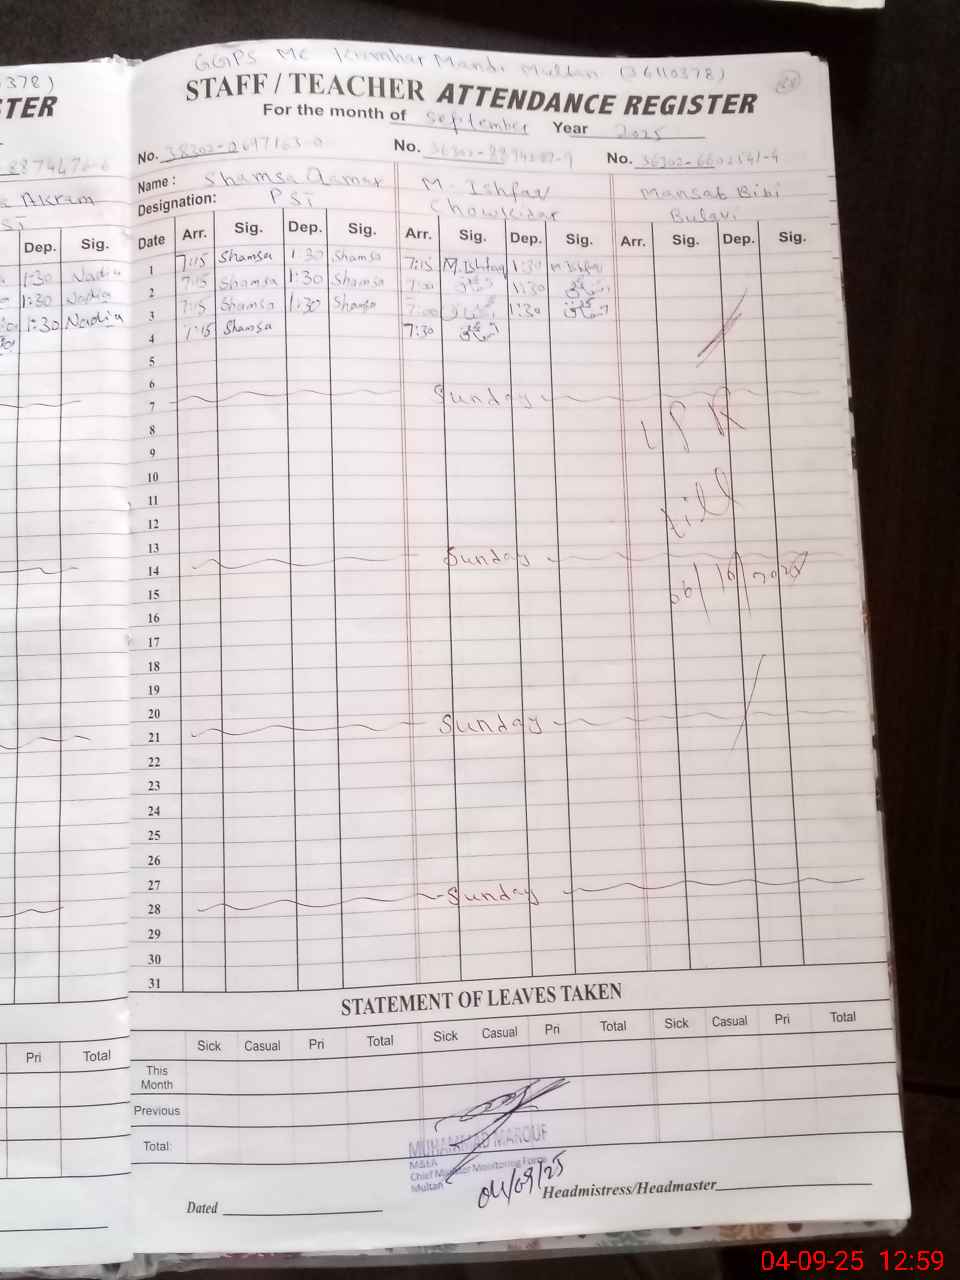 378)
STER
8874676-6
Akram
ST
Dep. Sig.
1:30 Nadia
1:30 Nadia
1:30 Nadia
Pri Total
GGPS MC Kumhar Mandi Multan (36110378)
STAFF / TEACHER ATTENDANCE REGISTER
For the month of September Year 2025
No. 38302-0697163-0 No. No. 36302-6602541-4
Name : Shamsa Qamar M. Ishfaq Mansab Bibi
Designation: PST Chowkidar
Date Arr. Sig. Dep. Sig. Arr. Sig. Dep. Sig. Arr. Sig. Dep. Sig.
1 7:15 Shamsa 1:30 Shamsa 7:15 M.Ishfaq 1:30 M.Ishfaq
2 7:15 Shamsa 1:30 Shamsa 7:00 اشفاق 1:30 اشفاق
3 7:15 Shamsa 1:30 Shamsa 7:00 اشفاق 1:30 اشفاق
4 7:15 Shamsa 7:30 اشفاق
5
6
7 Sunday
8 LPR
9
10
11
12 till
13
14 Sunday
15 06/10/2025
16
17
18
19
20
21 Sunday
22
23
24
25
26
27
28 Sunday
29
30
31
STATEMENT OF LEAVES TAKEN
Sick Casual Pri Total Sick Casual Pri Total Sick Casual Pri Total
This Month
Previous
Total:
MUHAMMAD MAROUF
M&EA
Chief Minister Monitoring Force
Multan
04/09/25
Dated Headmistress/Headmaster
04-09-25 12:59